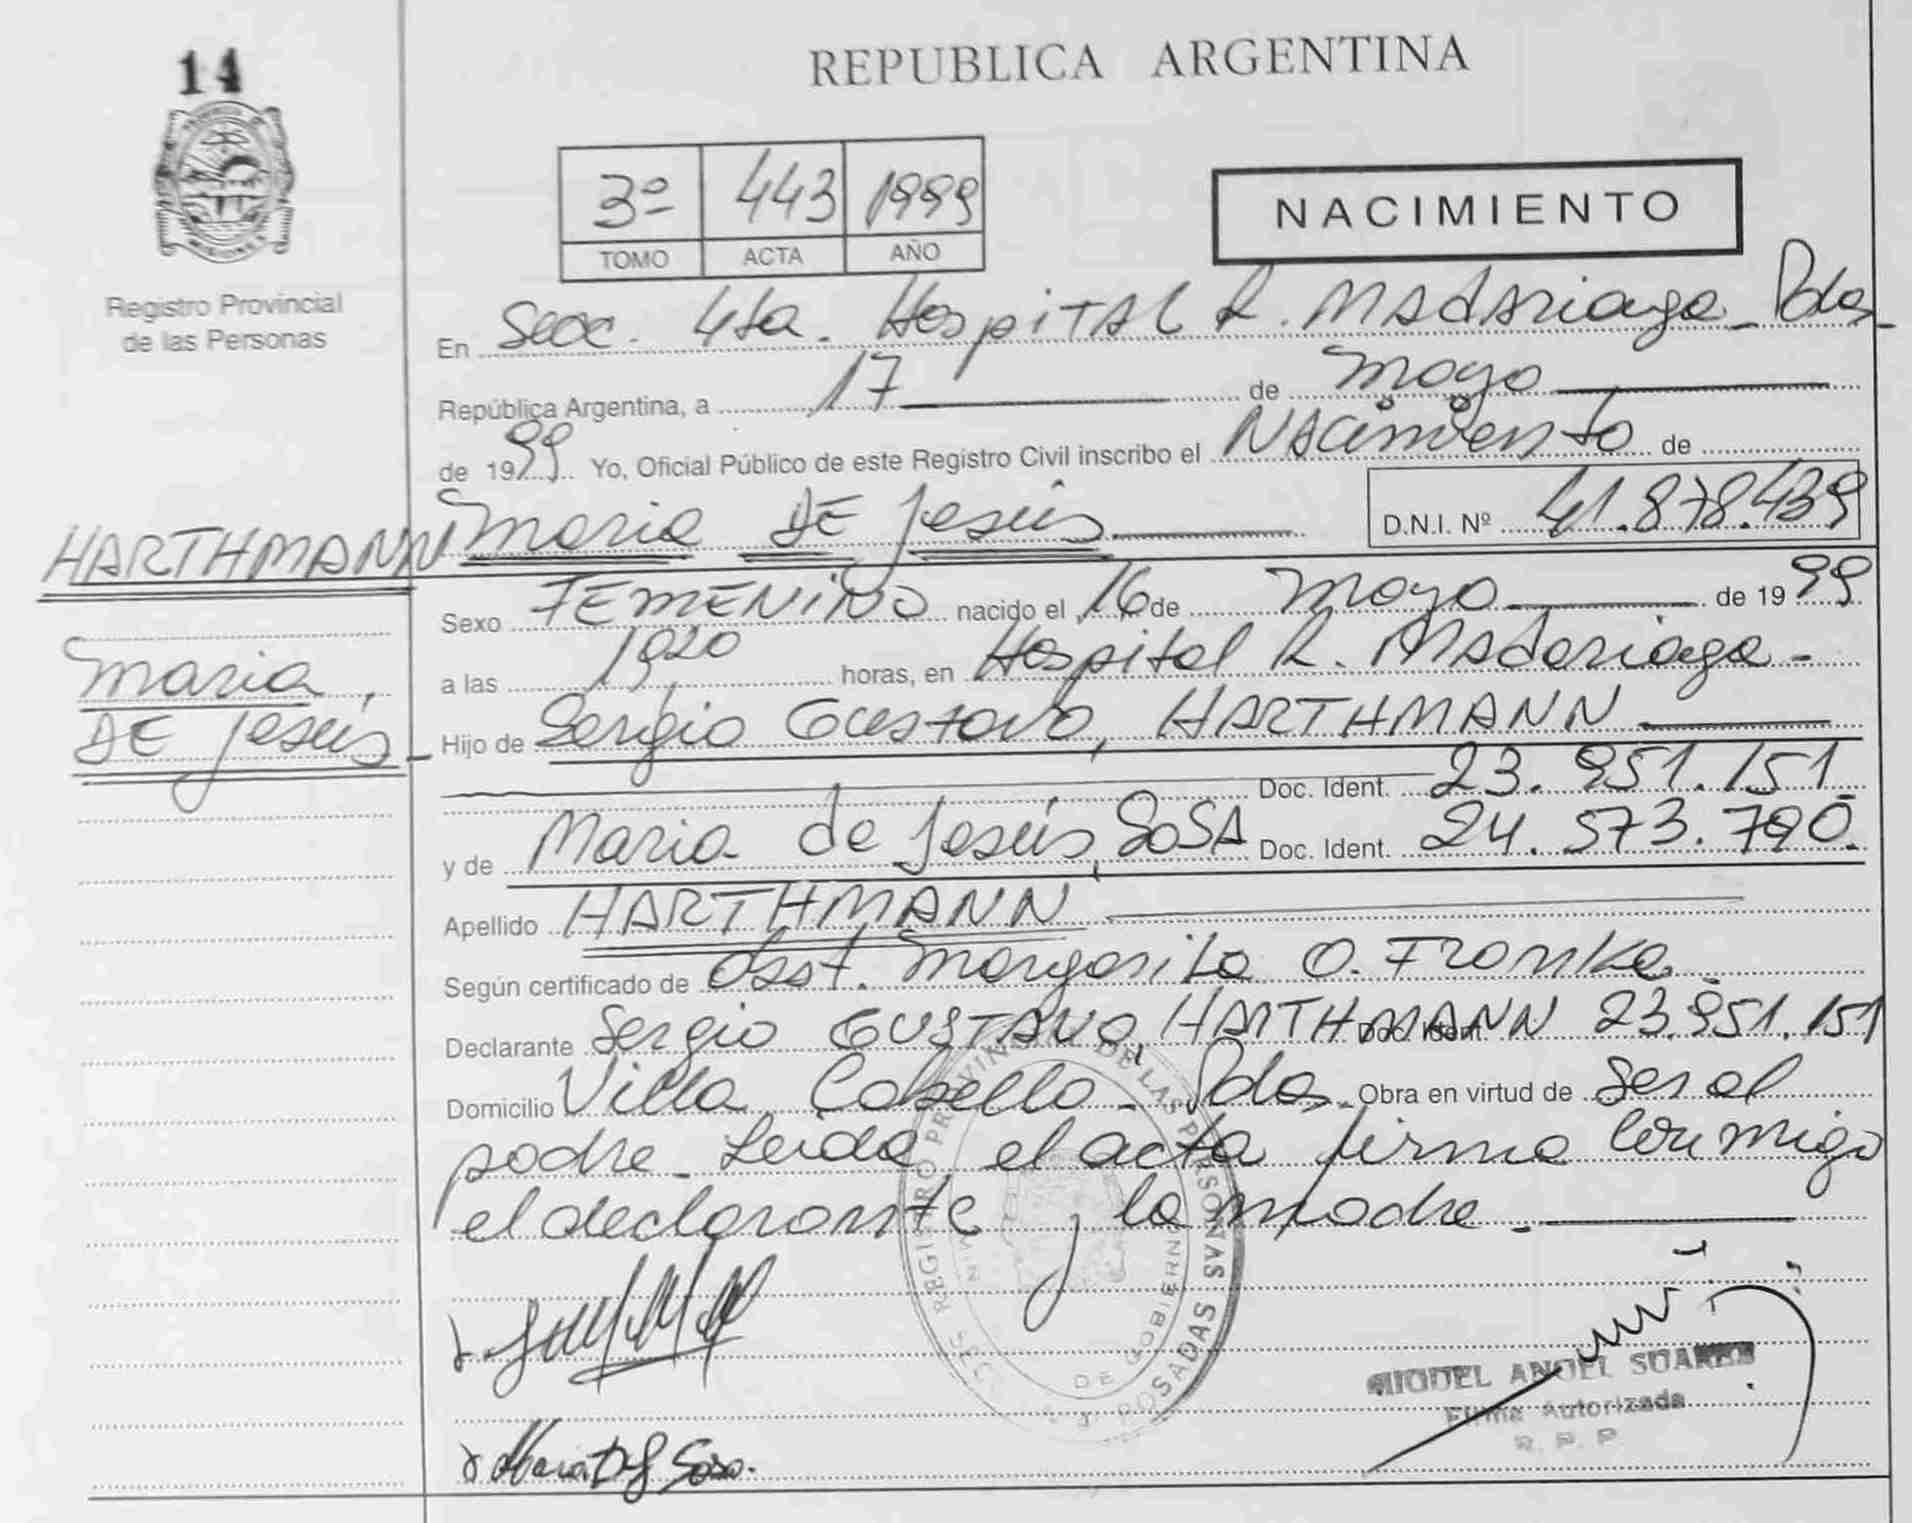 14
REPUBLICA ARGENTINA
3º 443 1999
TOMO ACTA AÑO
NACIMIENTO
Registro Provincial
de las Personas
En Secc. 4ta. Hospital R. Madariaga - Pdas -
República Argentina, a 17 de mayo
de 1999. Yo, Oficial Público de este Registro Civil inscribo el Nacimiento de
Maria DE Jesús D.N.I. Nº 41.878.439
HARTHMANN
Maria,
DE Jesús -
Sexo FEMENINO nacido el 16 de mayo de 1999
a las 1920 horas, en Hospital R. Madariaga -
Hijo de Sergio Gustavo, HARTHMANN
Doc. Ident. 23.951.151
y de Maria de Jesús, SOSA Doc. Ident. 24.573.790.
Apellido HARTHMANN
Según certificado de Obst. Margarita O. Fronke.
Declarante Sergio GUSTAVO, HARTHMANN Doc. Ident. 23.951.151
Domicilio Villa Cabello - Pdas. Obra en virtud de ser el
padre - Leida el acta firma conmigo
el declarante y la madre -
REGISTRO PROVINCIAL DE LAS PERSONAS
DE GOBIERNO
POSADAS
MIGUEL ANGEL SUAREZ
Firma Autorizada
R. P. P.
Maria D J Sosa.